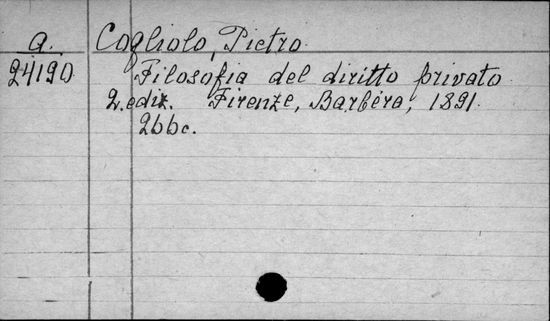 a. Cogliolo, Pietro.
24190 Filosofia del diritto privato
2. ediz. Firenze, Barbéra, 1891.
266c.